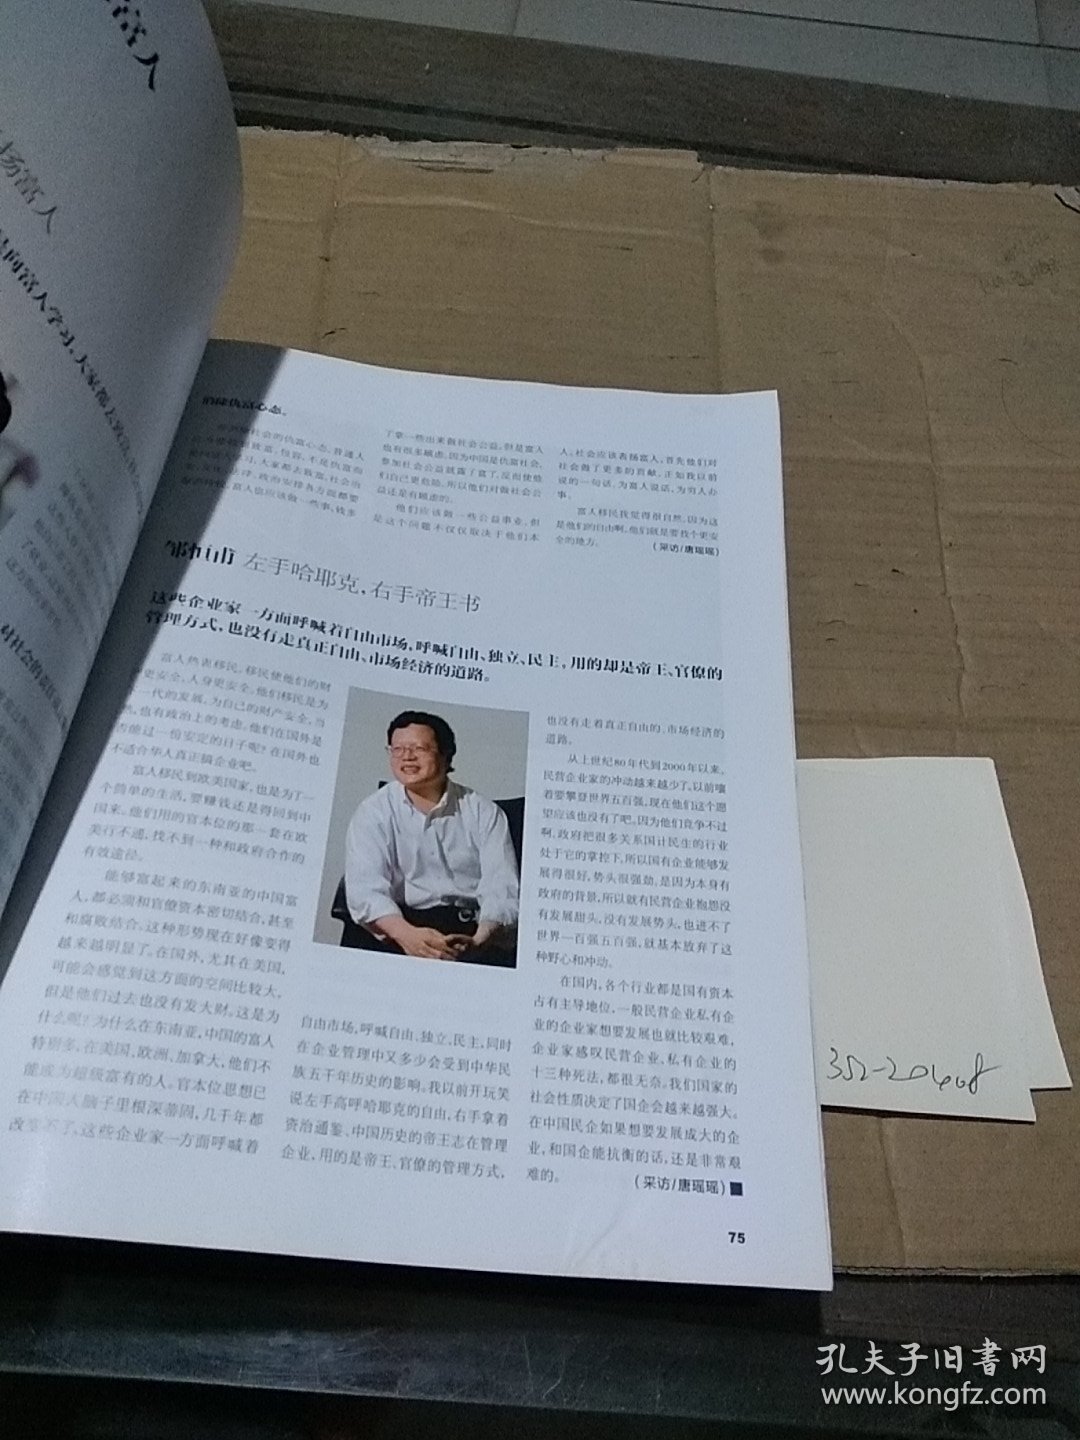 富人
扬富人
向富人学习，大家都去
消除仇富心态。
了拿一些出来做社会公益，但是富人
也有很多顾虑。因为中国是仇富社会，
参加社会公益就露了富了，反而使他
们自己更危险。所以他们对做社会公
益还是有顾虑的。
他们应该做一些公益事业，但
是这个问题不仅仅取决于他们本
人。社会应该表扬富人，首先他们对
社会做了更多的贡献，正如我以前
说的一句话，为富人说话，为穷人办
事。
富人移民我觉得很自然，因为这
是他们的自由啊，他们就是要找个更安
全的地方。
（采访/唐瑶瑶）
邹恒甫 左手哈耶克，右手帝王书
这些企业家一方面呼喊着自由市场，呼喊自由、独立、民主，用的却是帝王、官僚的
管理方式，也没有走真正自由、市场经济的道路。
富人热衷移民，移民使他们的财
更安全，人身更安全。他们移民是为
一代的发展，为自己的财产安全，当
然，也有政治上的考虑。他们在国外是
否能过一份安定的日子呢？在国外也
不适合华人真正搞企业吧。
富人移民到欧美国家，也是为了一
个简单的生活，要赚钱还是得回到中
国来。他们用的官本位的那一套在欧
美行不通，找不到一种和政府合作的
有效途径。
能够富起来的东南亚的中国富
人，都必须和官僚资本密切结合，甚至
和腐败结合。这种形势现在好像变得
越来越明显了。在国外，尤其在美国，
可能会感觉到这方面的空间比较大，
但是他们过去也没有发大财。这是为
什么呢？为什么在东南亚，中国的富人
特别多，在美国、欧洲、加拿大，他们不
能成为超级富有的人。官本位思想已
在中国人脑子里根深蒂固，几千年都
改变不了，这些企业家一方面呼喊着
自由市场，呼喊自由、独立、民主，同时
在企业管理中又多少会受到中华民
族五千年历史的影响。我以前开玩笑
说左手高呼哈耶克的自由，右手拿着
资治通鉴、中国历史的帝王志在管理
企业，用的是帝王、官僚的管理方式，
也没有走着真正自由的、市场经济的
道路。
从上世纪80年代到2000年以来，
民营企业家的冲动越来越少了，以前嚷
着要攀登世界五百强，现在他们这个愿
望应该也没有了吧。因为他们竞争不过
啊，政府把很多关系国计民生的行业
处于它的掌控下，所以国有企业能够发
展得很好，势头很强劲。是因为本身有
政府的背景，所以就有民营企业抱怨没
有发展甜头，没有发展势头，也进不了
世界一百强五百强，就基本放弃了这
种野心和冲动。
在国内，各个行业都是国有资本
占有主导地位，一般民营企业私有企
业的企业家想要发展也就比较艰难，
企业家感叹民营企业、私有企业的
十三种死法，都很无奈。我们国家的
社会性质决定了国企会越来越强大。
在中国民企如果想要发展成大的企
业，和国企能抗衡的话，还是非常艰
难的。
（采访/唐瑶瑶）
75
352-20408
孔夫子旧書网
www.kongfz.com